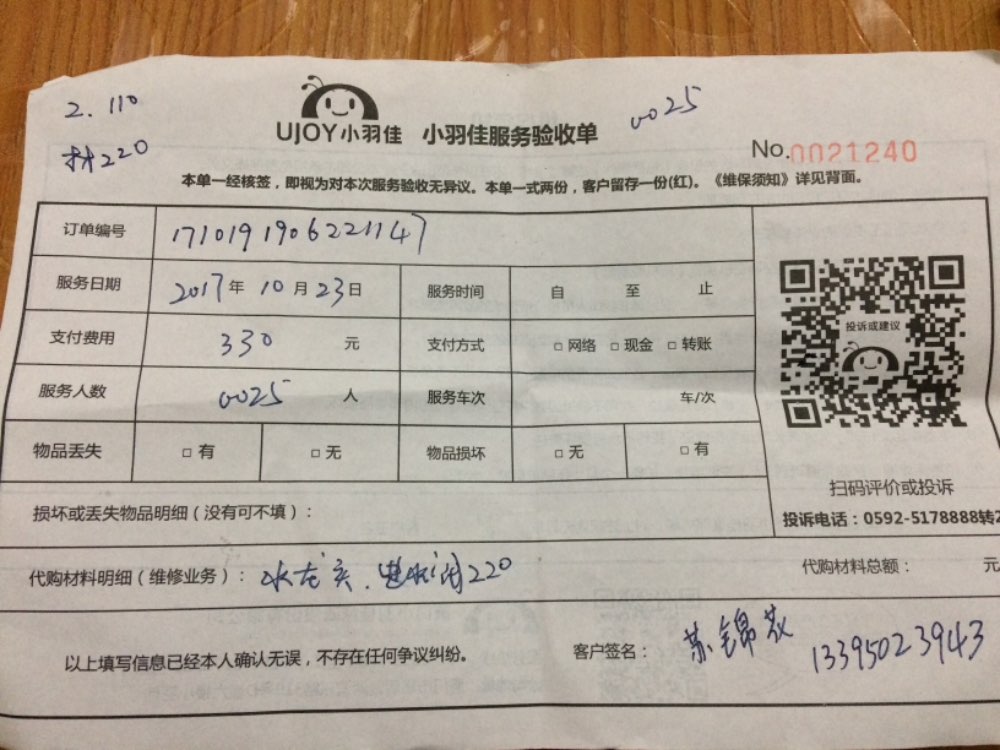 2. 110
材220
UJOY小羽佳 小羽佳服务验收单
0025
No.0021240
本单一经核签，即视为对本次服务验收无异议。本单一式两份，客户留存一份(红)。《维保须知》详见背面。
订单编号 1710191906221147
服务日期 2017年 10月 23日 服务时间 自 至 止
支付费用 330 元 支付方式 □网络 □现金 □转账
服务人数 0025 人 服务车次 车/次
物品丢失 □有 □无 物品损坏 □无 □有
投诉或建议
扫码评价或投诉
投诉电话：0592-5178888转2
损坏或丢失物品明细（没有可不填）：
代购材料明细（维修业务）：水龙头.进水阀220
代购材料总额： 元
以上填写信息已经本人确认无误，不存在任何争议纠纷。
客户签名： 苏锦 13395023943